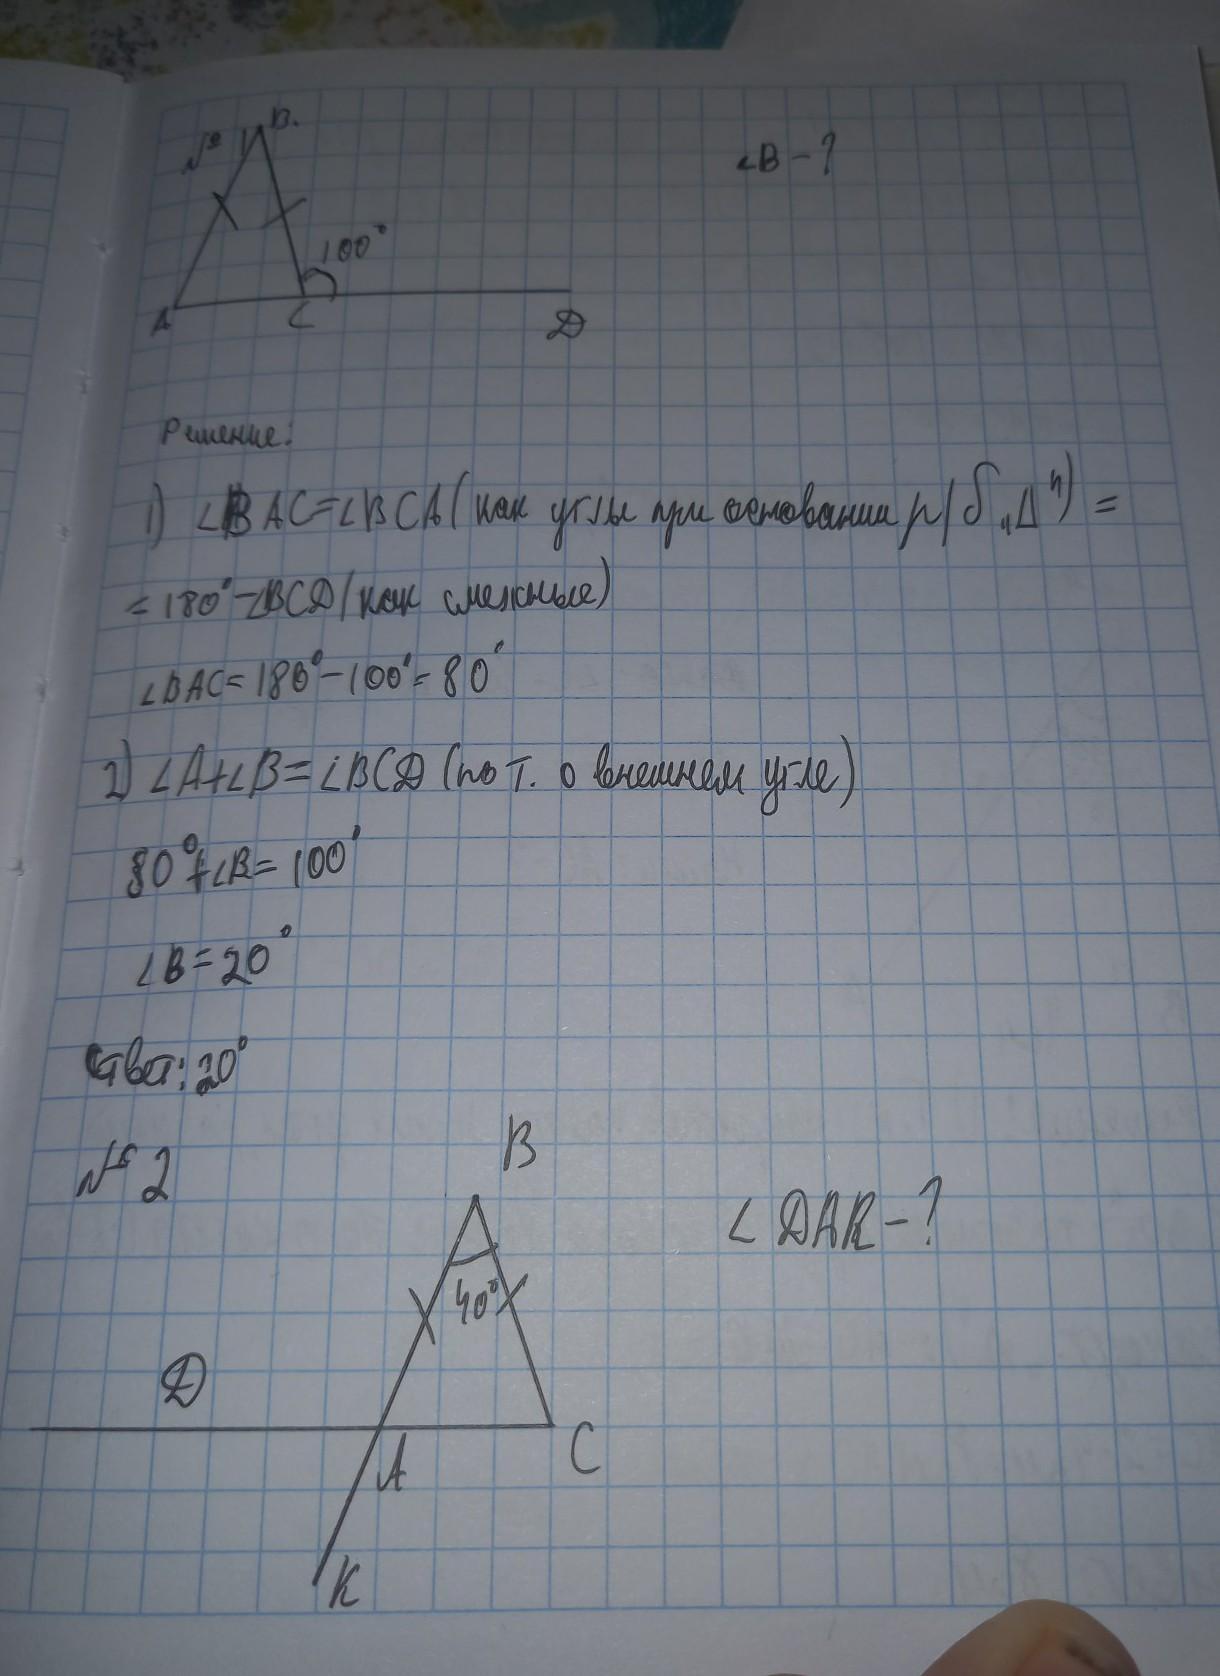 №1
B.
∠B - ?
100°
A
C
D
Решение:
1) ∠BAC=∠BCA (как углы при основании р/б „Δ") =
= 180° - ∠BCD (как смежные)
∠BAC = 180° - 100° = 80°
2) ∠A+∠B = ∠BCD (по т. о внешнем угле)
80° + ∠B = 100°
∠B = 20°
Ответ: 20°
№2
B
∠DAK - ?
40°
D
A
C
K